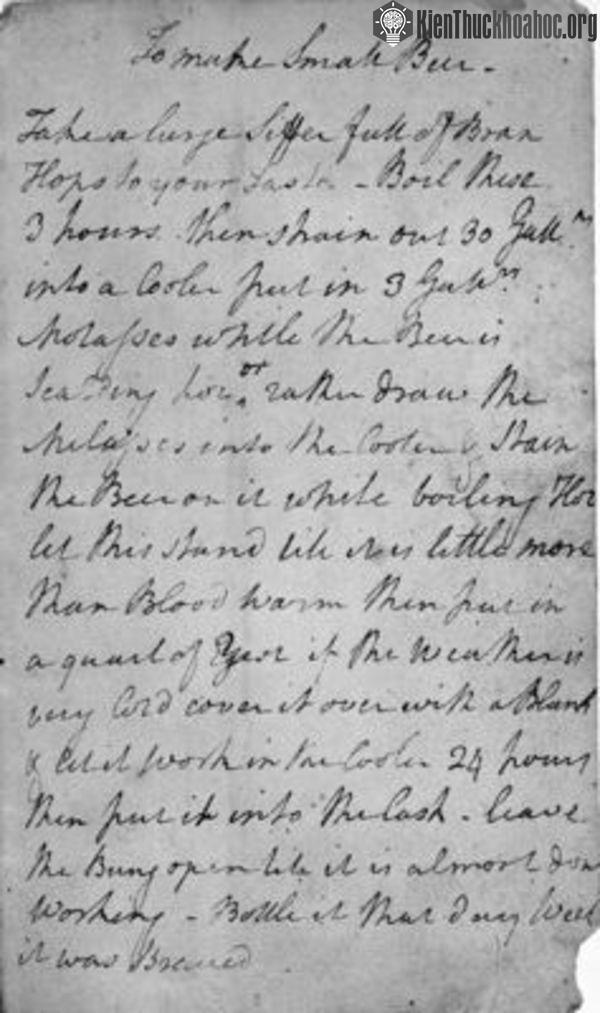 KienThuckhoahoc.org
To make Small Beer -
Take a large Siffer full of Bran
Hops to your Taste - Boil these
3 hours. then strain out 30 Gall.ns
into a Cooler put in 3 Gall.ns
Molasses while the Beer is
Scalding hot or rather draw the
Molasses into the Cooler & Strain
the Beer on it while boiling Hot
let this stand till it is little more
than Blood warm then put in
a quart of Yest if the weather is
very Cold cover it over with a Blank
& let it work in the Cooler 24 hours
then put it into the Cask - leave
the Bung open till it is almost done
working - Bottle it that day Week
it was Brewed